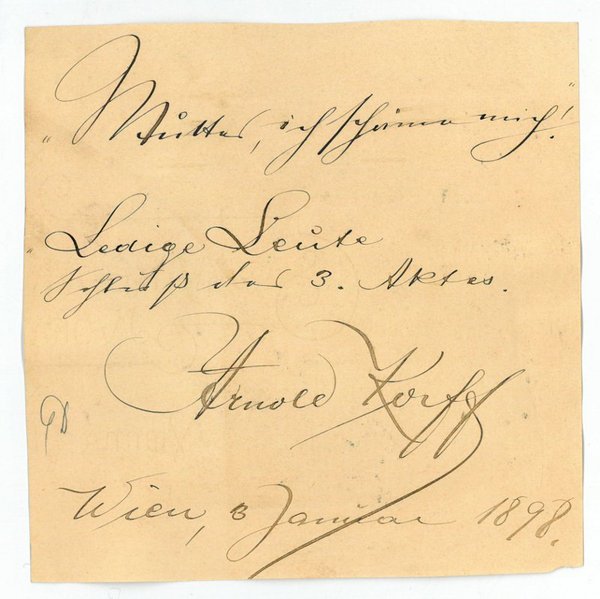 "Mutter, ich schäme mich!"
"Ledige Leute
Schluß des 3. Aktes.
Arnold Korff
Wien, 3 Januar 1898.